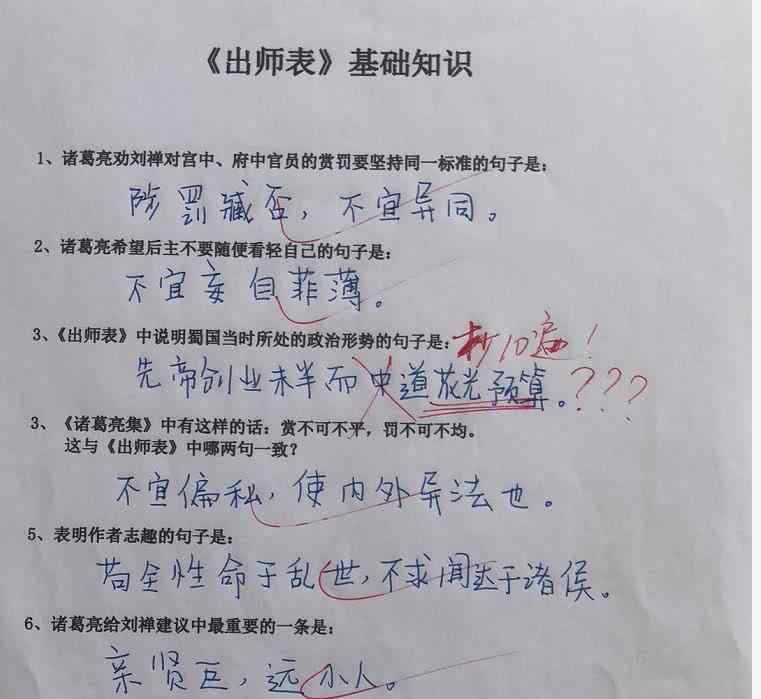 《出师表》基础知识
1、诸葛亮劝刘禅对宫中、府中官员的赏罚要坚持同一标准的句子是：
陟罚臧否，不宜异同。
2、诸葛亮希望后主不要随便看轻自己的句子是：
不宜妄自菲薄。
3、《出师表》中说明蜀国当时所处的政治形势的句子是： 抄10遍！
先帝创业未半而中道花光预算。???
3、《诸葛亮集》中有这样的话：赏不可不平，罚不可不均。
这与《出师表》中哪两句一致？
不宜偏私，使内外异法也。
5、表明作者志趣的句子是：
苟全性命于乱世，不求闻达于诸侯。
6、诸葛亮给刘禅建议中最重要的一条是：
亲贤臣，远小人。